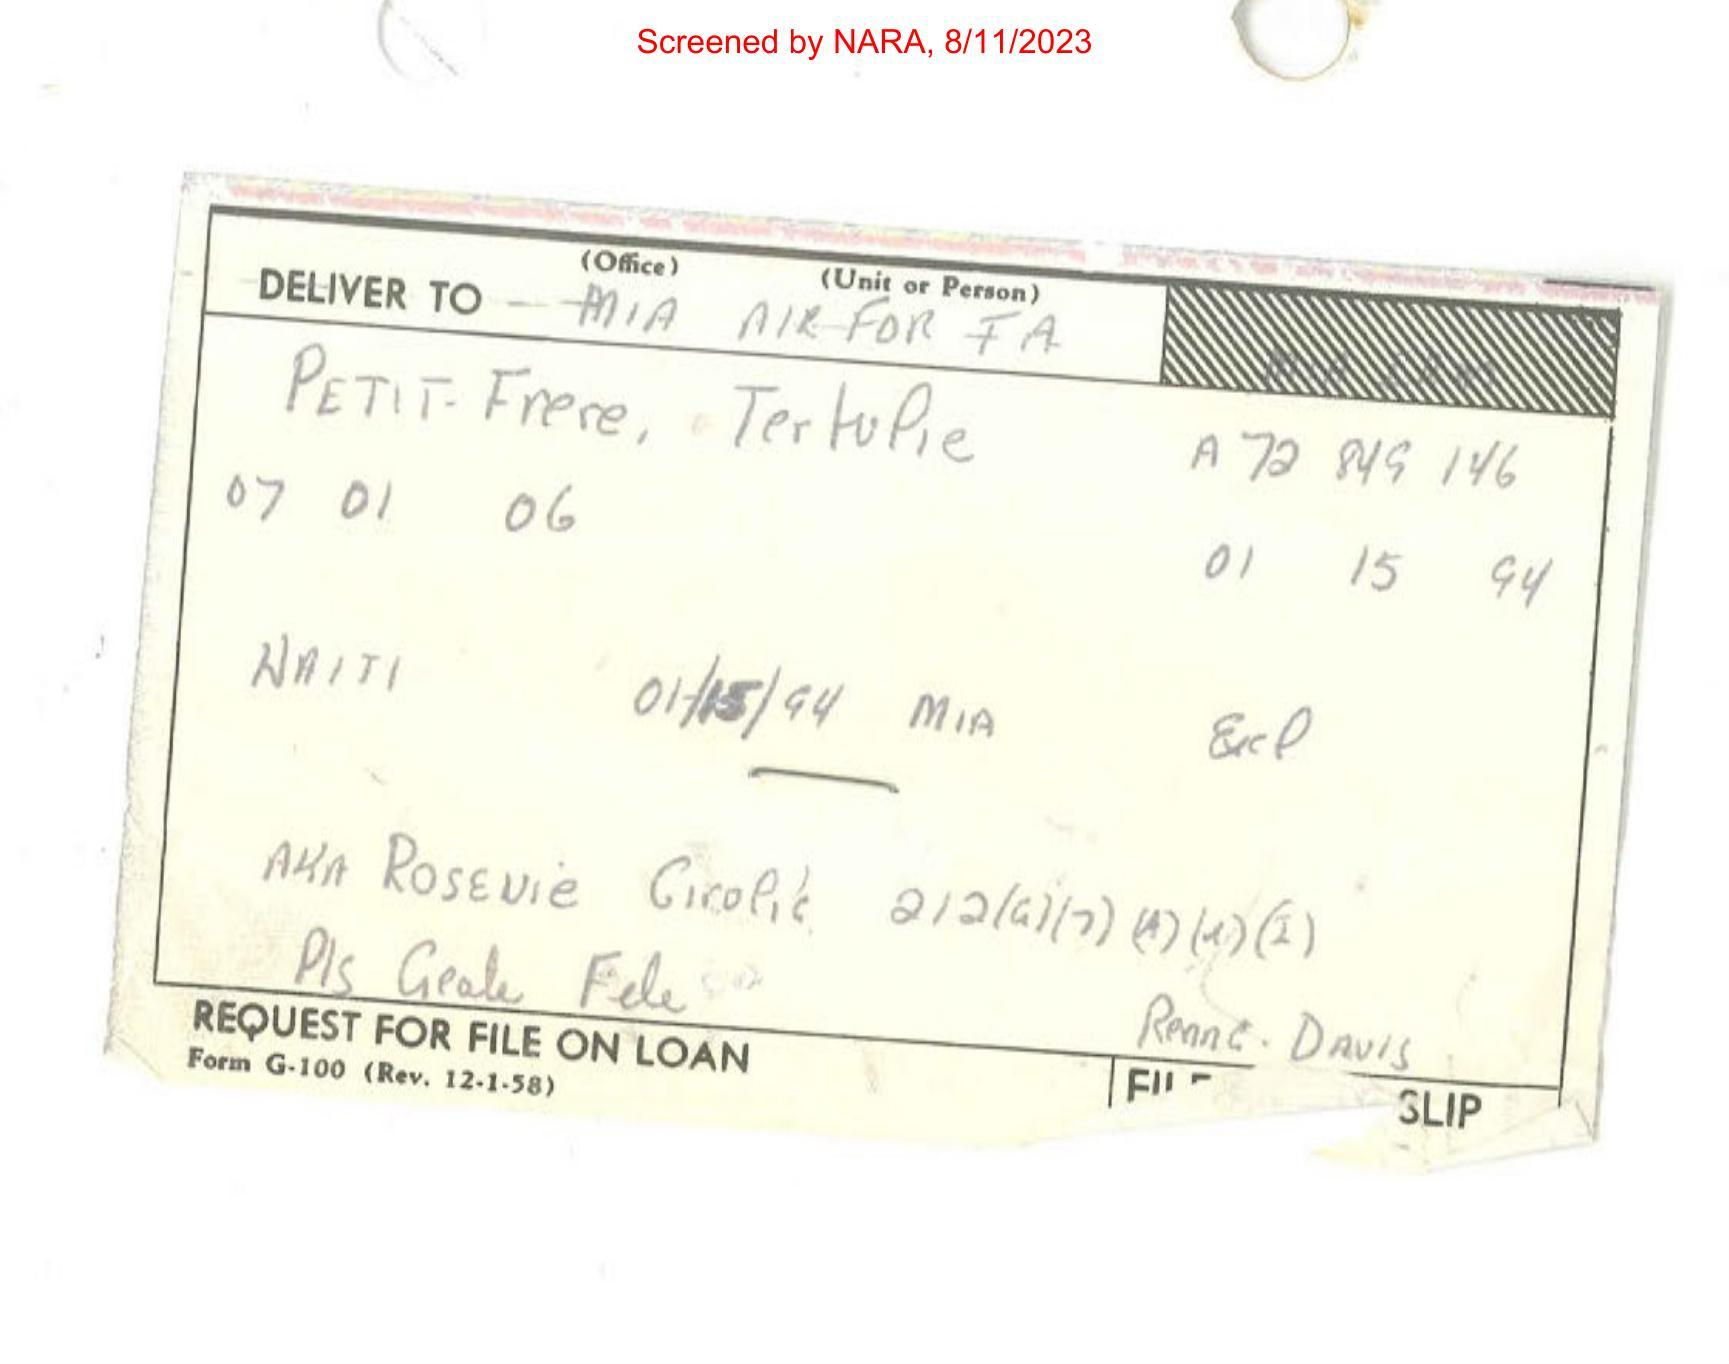 Screened by NARA, 8/11/2023
(Office) (Unit or Person)
DELIVER TO MIA AIR FOR IA
PETIT-Frere, Tertulie A 72 849 146
07 01 06
01 15 94
HAITI 01/15/94 MIA Excl
AKA ROSENIE 212(a)(7)(A)(i)(I)
Pls Create File
DAVIS
REQUEST FOR FILE ON LOAN
Form G-100 (Rev. 12-1-58) SLIP